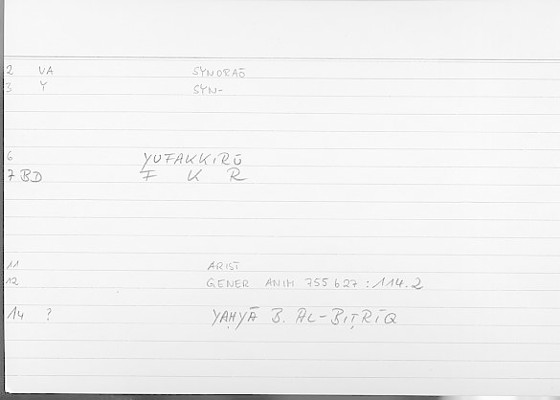 2 VA SYNORAŌ
3 Y SYN-
6 YUFAKKIRŪ
7 BD F K R
11 ARIST
12 GENER ANIM 755 b27 : 114.2
14 ? YAḤYĀ B. AL-BIṬRĪQ